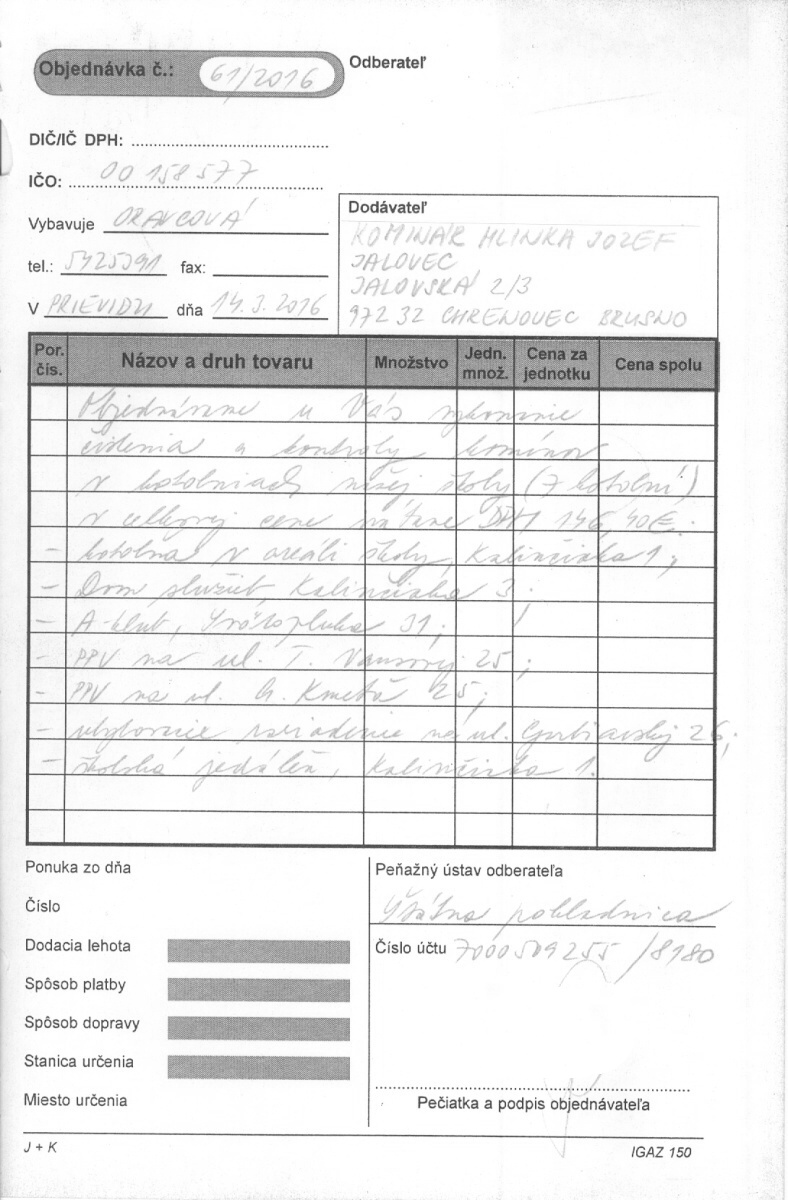 Objednávka č.: 61/2016
Odberateľ
DIČ/IČ DPH:
IČO: 00 158 577
Vybavuje ORAVCOVÁ
tel.: 5425391 fax:
V PRIEVIDZI dňa 14.3.2016
Dodávateľ
KOMINÁR HLINKA JOZEF
JALOVEC
JALOVSKÁ 2/3
972 32 CHRENOVEC BRUSNO
Por. čís. Názov a druh tovaru Množstvo Jedn. množ. Cena za jednotku Cena spolu
Objednávame u Vás vykonanie
čistenia a kontroly komínov
v kotolniach našej školy (7 kotolní)
v celkovej cene vrátane DPH 146,40€:
- kotolňa v areáli školy, Kalinčiaka 1;
- Dom služieb, Kalinčiaka 3;
- A-klub, Svätopluka 31;
- PPV na ul. T. Vansovej 25;
- PPV na ul. A. Kmeťa 25;
- ubytovacie zariadenie na ul. 26;
- školská jedáleň, Kalinčiaka 1.
Ponuka zo dňa
Číslo
Dodacia lehota
Spôsob platby
Spôsob dopravy
Stanica určenia
Miesto určenia
Peňažný ústav odberateľa
Štátna pokladnica
Číslo účtu 7000509255/8180
Pečiatka a podpis objednávateľa
J + K
IGAZ 150